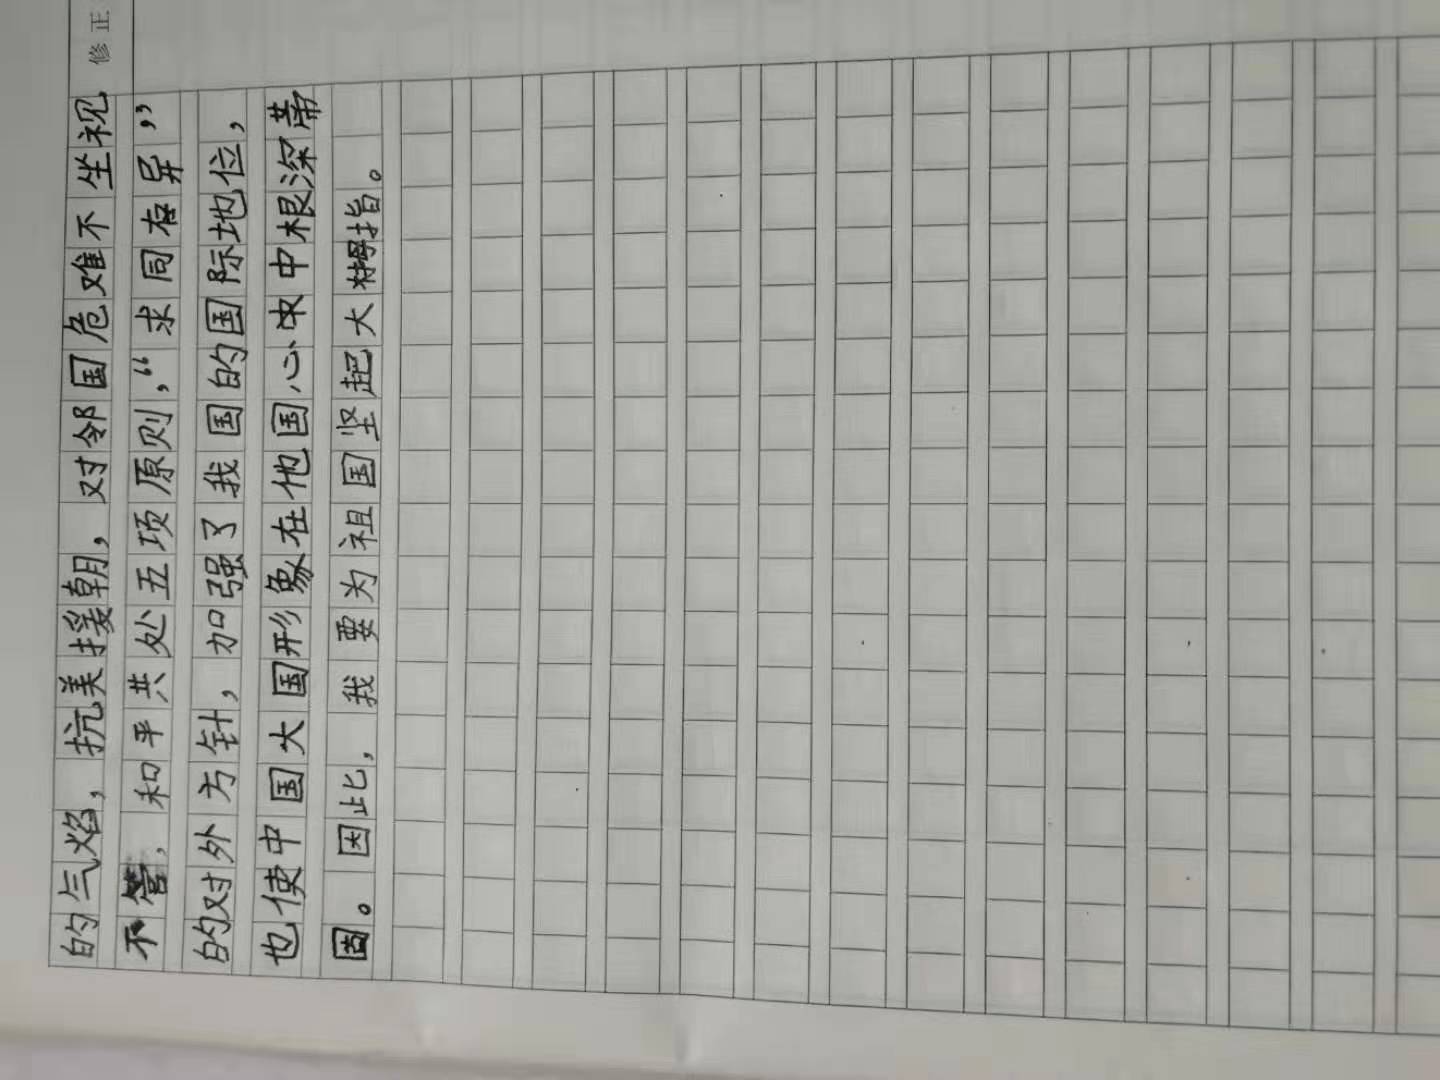 修正
的气焰，抗美援朝，对邻国危难不坐视
不管，和平共处五项原则，“求同存异，”
的对外方针，加强了我国的国际地位，
也使中国大国形象在他国心中中根深蒂
固。因此，我要为祖国坚起大拇指。